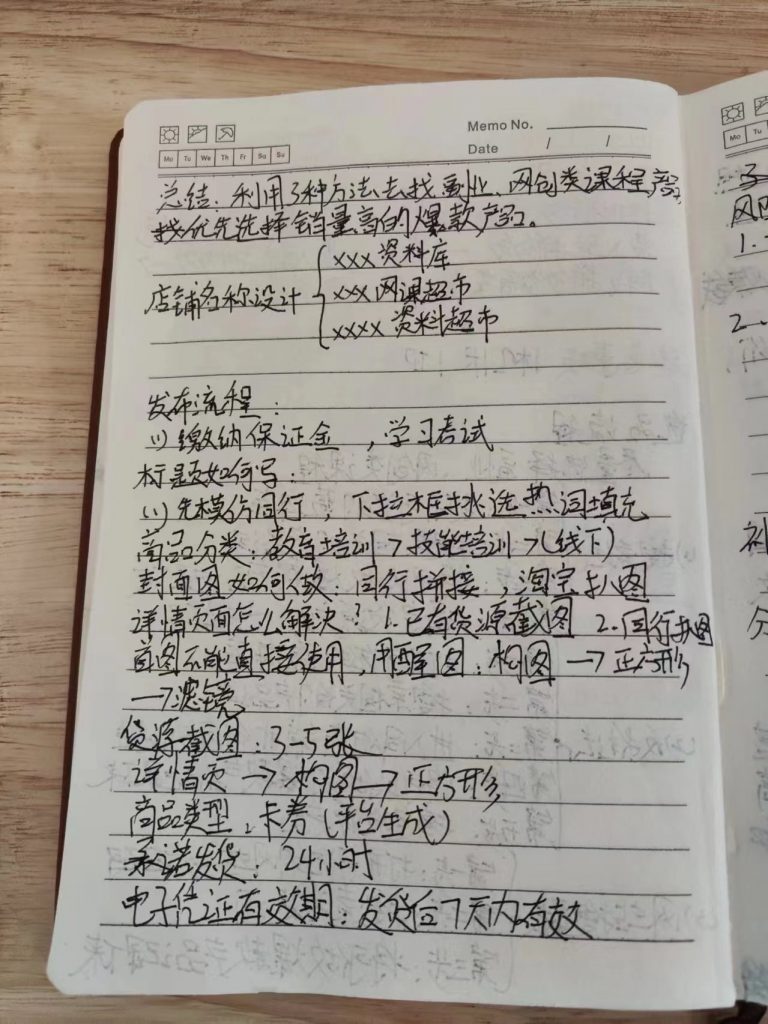 Memo No.
Date / /
Mo Tu We Th Fr Sa Su
总结：利用3种方法去找副业、网创类课程,产品
找优先选择销量高的爆款产品。
店铺名称设计
xxx资料库
xxx网课超市
xxxx资料超市
发布流程：
(1)缴纳保证金，学习考试
标题如何写：
(1)先模仿同行，下拉框挑选热词填充
商品分类：教育培训>技能培训>(线下)
封面图如何做：同行拼接，淘宝扒图
详情页面怎么解决？1.已有货源截图 2.同行扒图
首图不能直接使用，用醒图：构图→正方形
→滤镜
货源截图：3-5张
详情页→构图→正方形
商品类型：卡券(平台生成)
承诺发货：24小时
电子信证有效期：发货后7天内有效
Mo Tu
1.
2.